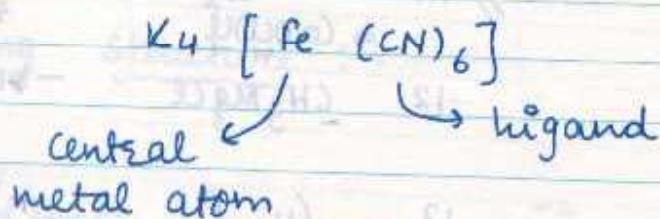 K4 [Fe (CN)6]
central
metal atom
ligand